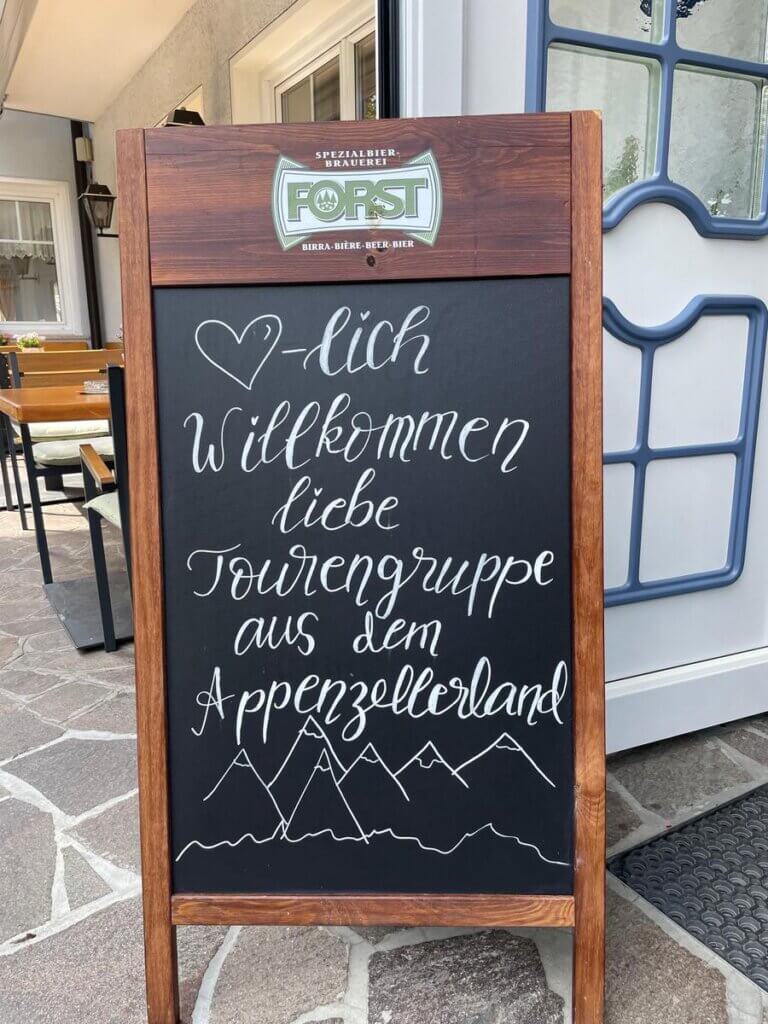 SPEZIALBIER-
BRAUEREI
FORST
BIRRA-BIÈRE-BEER-BIER
♡-lich
Willkommen
liebe
Tourengruppe
aus dem
Appenzellerland